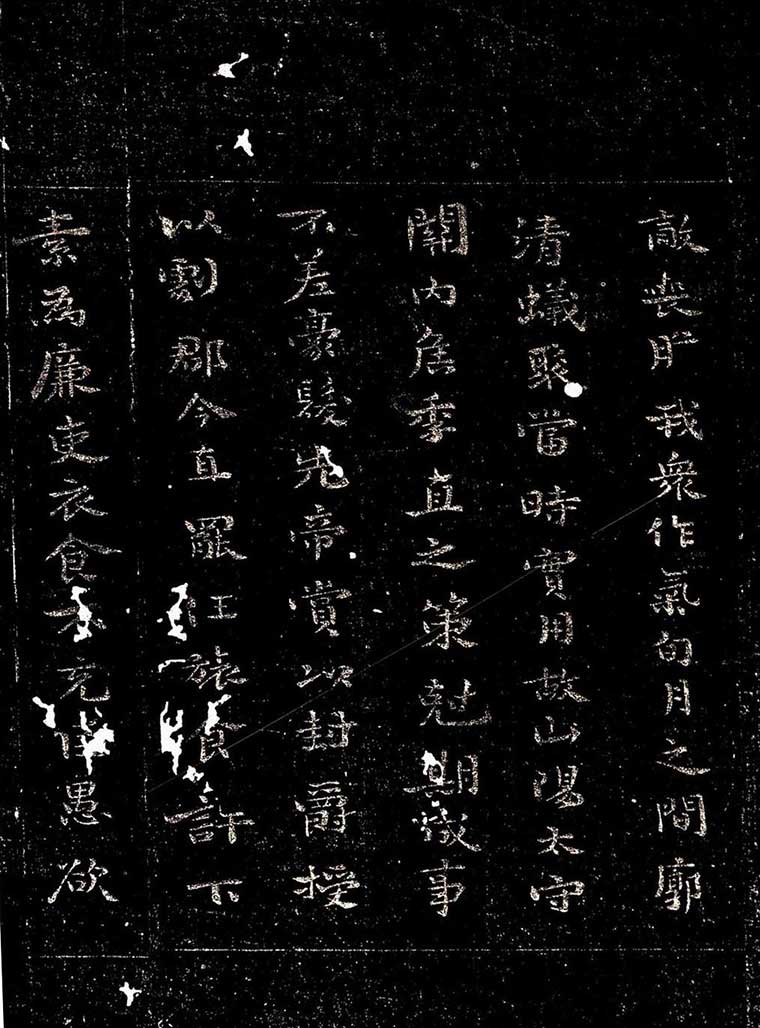 敵喪膽我衆作氣旬月之間廓
清蟻聚當時實用故山陽太守
關內侯季直之策剋期成事
不差豪髮先帝賞以封爵授
以劇郡今直罷任旅食許下
素為廉吏衣食不充臣愚欲